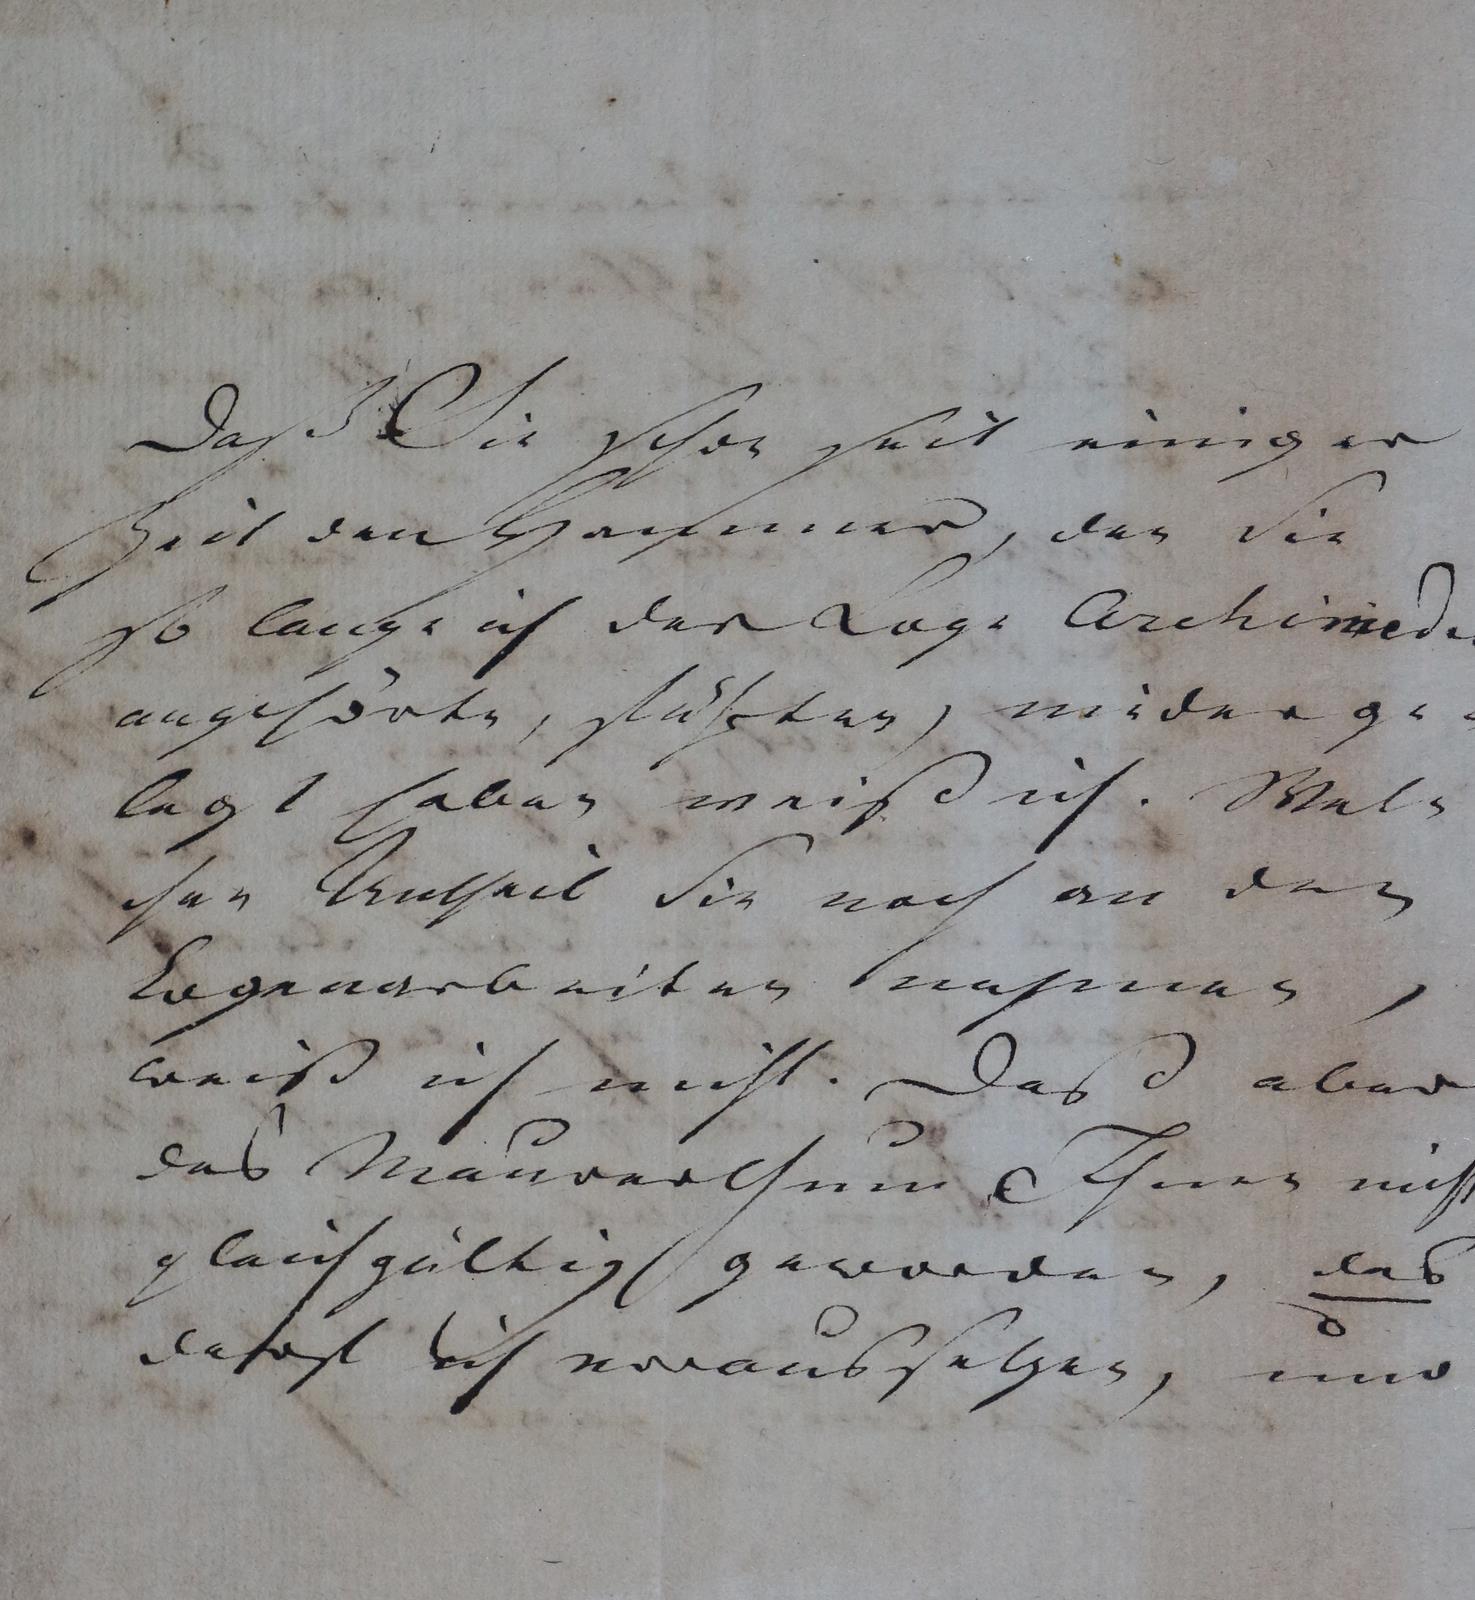 Daß Sie schon seit einiger
Zeit den Hammer, den Sie
so lange ich der Loge Archimedes
angehörte, führten, niederge-
legt haben weiß ich. Wel-
chen Antheil Sie noch an den
Logenarbeiten nehmen,
weiß ich nicht. Daß aber
das Maurerthum Ihnen nicht
gleichgültig geworden, das
darf ich voraussetzen, und